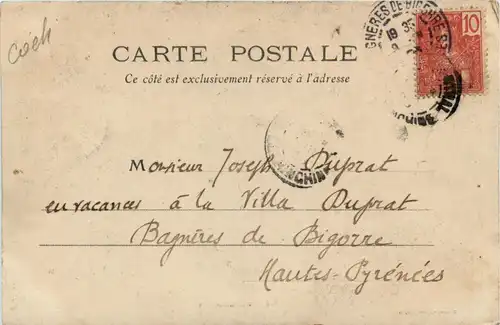 Coch
GNÈRES DE BIGORRE
19
10
CARTE POSTALE
Ce côté est exclusivement réservé à l'adresse
Monsieur Joseph Duprat
en vacances à la Villa Duprat
Bagnères de Bigorre
Hautes-Pyrénées